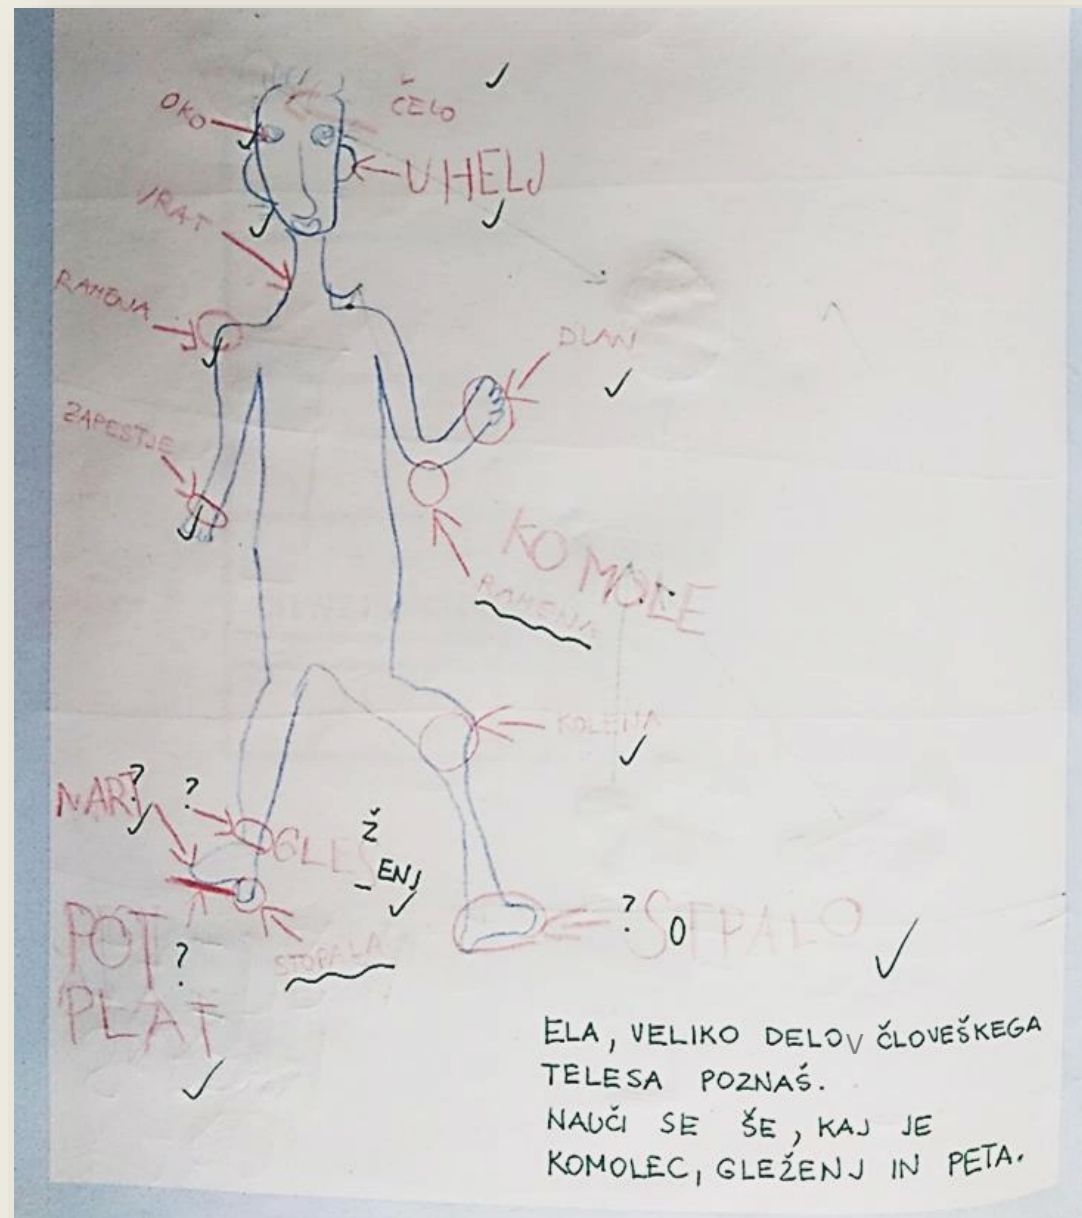 ČELO
OKO
UHELJ
VRAT
RAMENA
DLAN
ZAPESTJE
KOMOLE
RAMENA
KOLENA
NART
?
?
GLES
Ž
ENJ
STOPALA
POT
?
PLAT
?
STPALO
O
ELA, VELIKO DELOV ČLOVEŠKEGA
TELESA POZNAŠ.
NAUČI SE ŠE, KAJ JE
KOMOLEC, GLEŽENJ IN PETA.